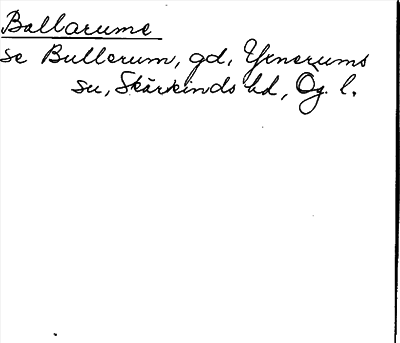 Ballarume
se Bullerum, gd, Yxnerums
su, Skärkinds hd, Ög. l.